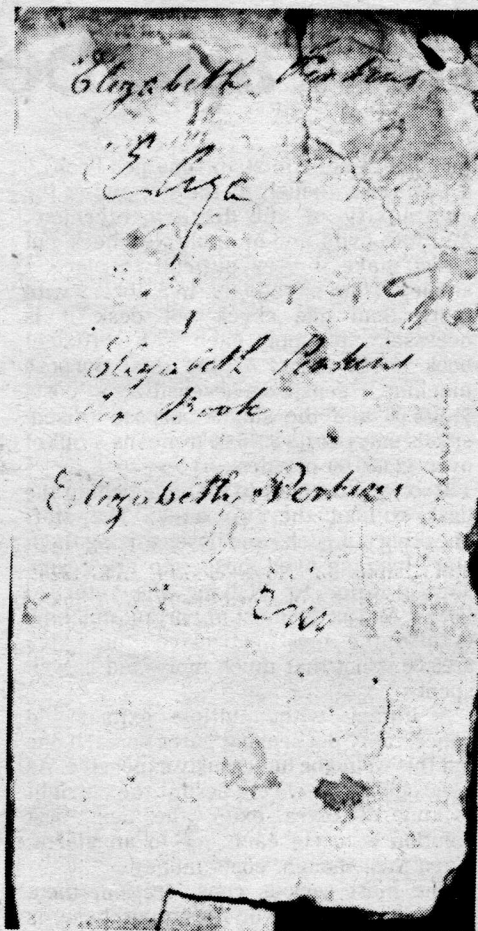 Elizabeth Perkins
Eliza
Elizabeth Perkins
her Book
Elizabeth Perkins